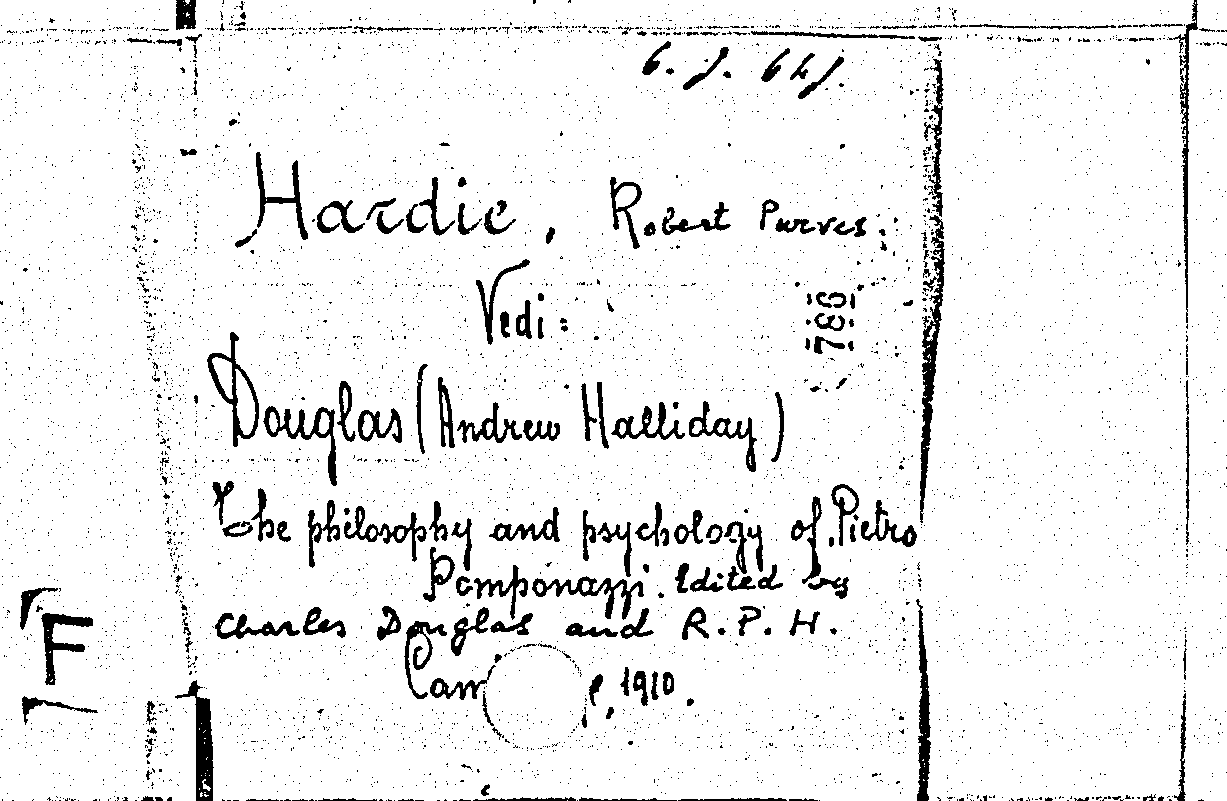 6. J. 64J.
Hardie, Robert Purves.
Vedi:
786
Douglas (Andrew Halliday)
The philosophy and psychology of Pietro
Pomponazzi. Edited by
Charles Douglas and R. P. H.
Cam e, 1910.
F